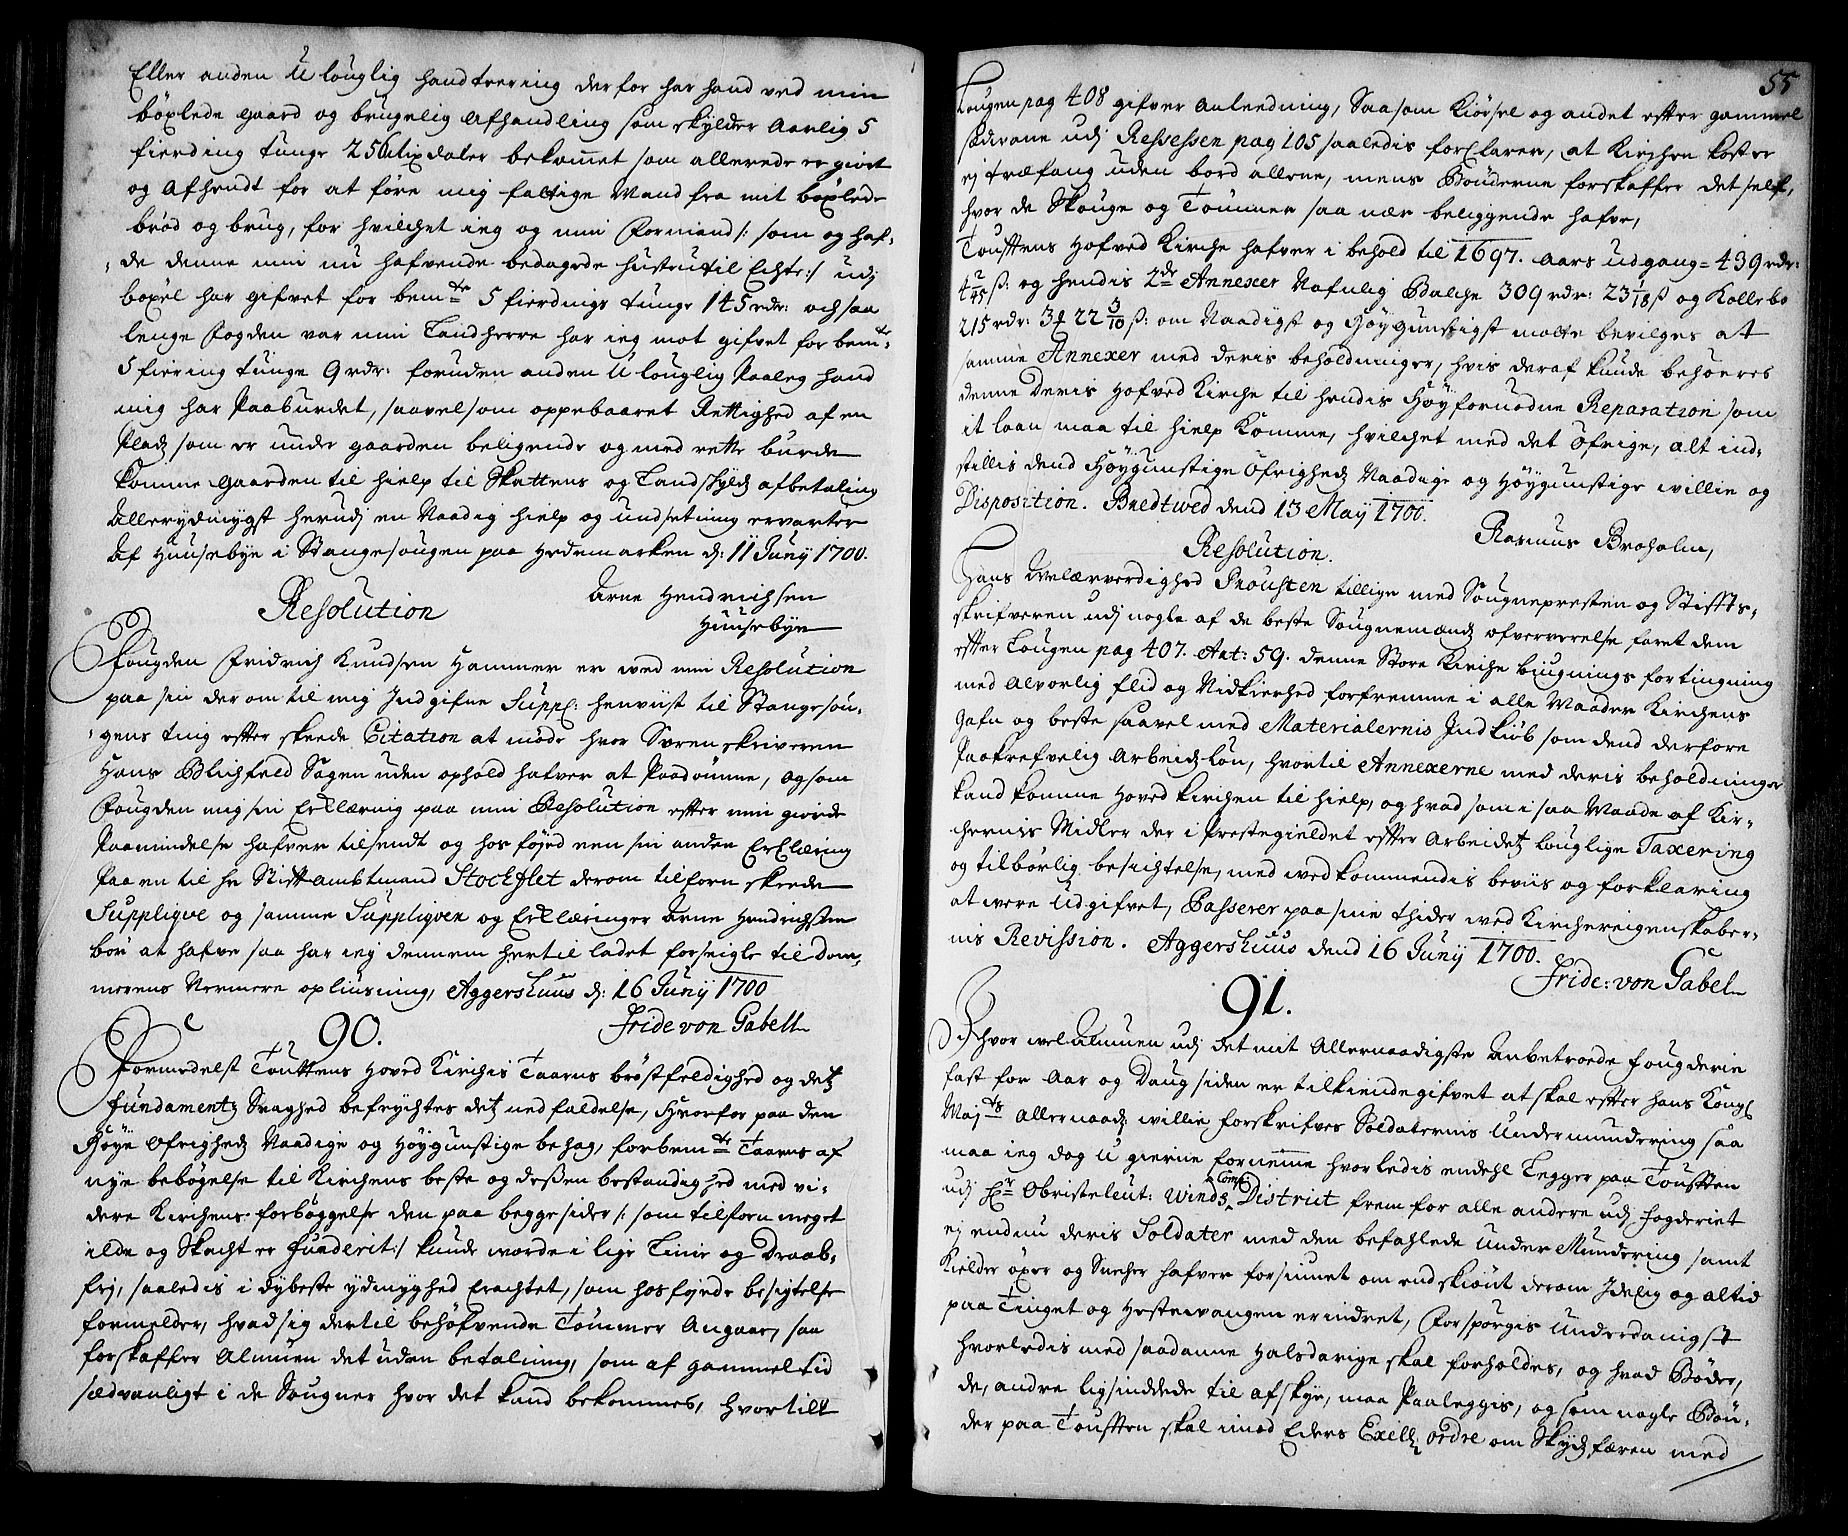 Eller anden Ulouglig handtering derfor har hand ved min
böxlede gaard og brugelig Afhandling som skylder Aarlig 5
fierding tunge 256 Rixdaler bekommet som allerede er giort
og Afhendt for at före mig fattige Mand fra mit böxlede
bröd og brug, for hvilchet ieg og min Formand /: som og haf-
de denne min nu hafvende bedagede hustru til Echte :/ udj
böxel har gifvet for bemte 5 fierdings tunge 145 rdr: och saa
lenge Fogden var min Landherre har ieg mot gifvet for bemte
5 fiering tunge 9 rdr: foruden anden Ulouglig Paaleg hand
mig har Paaburdet, saavelsom oppebaaret Rettighed af en
Pladz som er under gaarden beligende og med rette burde
komme gaarden til hielp til Skattens og Landskyldz afbetaling
Allerydmygst herudj en Naadig hielp og undsetning ervarter
Af Huusebye i Stangesougen paa Hedemarken d: 11 Juny 1700.
Arne Hendrichsen
Huusebye
Resolution
Fougden Fridrich Knudsen Hammer er wed min Resolution
paa sin derom til mig Indgifne Suppl: henviist til Stangesou-
gens ting efter skeede Citation at möde hvor Sorenskriveren
Hans Blichfeld Sagen uden ophold hafver at Paadömme, og som
Fougden mig sin Erklæring paa min Resolution efter min giorde
Paamindelse hafver tilsendt og hosföjed een sin anden Erklæring
Paa en til hr Stiftambtmand Stockflet derom tilforn skeede
Supplique og samme Suppliqver og Erklæringer Arne Hendrichsen
bör at hafve saa har ieg dennem hertil ladet forseigle til Dom-
merens Nermere opliusning, Aggershuus d: 16 Juny 1700
Fride von Gabell
90.
Formedelst Touttens Hoved Kirchis Taarns bröstfeldighed og detz
Fundamentz Svaghed befrychtes detz nedfaldelse, Hvorfor paa den
Höye Øfrighedz Naadige og Höygunstige behag, forbemte Taarns af
nye bebögelse til Kirchens beste og dessen bestandighed med vi-
dere Kirchens forböggelse den paa begge sider /: som tilforn meget
ilde og Slacht er funderit :/ kunde worde i lige Linie og Draab-
frj, saaledis i dybeste ydmyghed Erachtet, som hosfyede besigtelse
formelder, hvad sig dertil behöfvende Tömmer Angaar, saa
forskaffer Almuen det uden betaling, som af gammel tid
sædvanligt i de Sougner hvor det kand bekommes, hvortill
55
Lougen pag 408 gifver Anleedning, Saasom Kiörsel og andet efter gammel
sædvane udj Ressessen pag 105 saaledis forclarer, at Kirchen koster
ej træfang uden bord allene, mens Bönderne forskaffer det self,
hvor de Skouge og Tömmer saa nær beliggende hafve,
Touttens Hofved Kirche hafver i behold til 1697. Aars udgang = 439 rdr:
4/45 ß: og hendis 2de Annexer Nafnlig Balche 309 rdr: 23 1/18 ß og Kollebo
215 rdr: 3 22 3/10 ß: om Naadigst og Höygunstigst motte bevilges at
samme Annexer med deris beholdninger, hvis deraf kunde behöeves
denne Deris Hofved Kirche til hendis Höyfornödne Reparation som
it laan maa til hielp komme, hvilchet med det Öfrige, alt ind-
stillis dend Höygunstige Öfrighedz Naadige og Höygunstige willie og
Disposition. Bredtwed dend 13 May 1700.
Rasmus Broholm,
Resolution.
Hans Welærverdighed Prousten tillige med Sougnepresten og Stiffts-
skrifveren udj nogle af de beste Sougnemændz ofververelse faret dem
efter Lougen pag 407. Art: 59. denne Store Kirche bygnings fortingning
med Alvorlig flid og Nidkierhed forfremme i alle Maader Kirchens
Gafn og beste saavel med Materialernis Indkiöb som dend derfore
Paakrefvelig Arbeidzlön, hvortil Annexerne med deris beholdninger
kand komme Hoved Kirchen til hielp, og hvad som i saa Maade af Kir-
chernis Midler der i Prestegieldet efter Arbeidetz louglige Taxering
og tilbörlig besichtelse, med wedkommendis beviis og forklaring
at were Udgifvet, Passerer paa sine thider wed Kircheregenskaber-
nis Revission. Aggershuus dend 16 Juny 1700.
Fride: von Gabel
91.
Ihvor wel Almuen udj det mit Allernaadigste Anbetroede fougderie
fast for Aar og Daug siden er tilkiendegifvet at skal efter Hans Kongl
Majts Allernaadz willie forskrifves Soldaternis Undermundering saa
maa ieg dog U gierne fornemme hvorledis endehl Legger paa Toutten
udj Hr Obristeleut: Windz Comp: District frem for alle andere udj fogderiet
ej endnu deris Soldater med den befahlede Under Mundering samt
Kielder öxer og Sæcher hafver forsiunet om endskiönt derom Idelig og altid
paa Tinget og Hestewangen erindret, Forspörgis Underdanigst
hvorledis med saadanne Halsdarige skal forholdes, og hvad Böder,
de, andre ligsindede til afskye, maa Paaleggis, og som nogle Bön-
der paa Toutten skal imod Eders Excell: ordre om Skydzfæren med